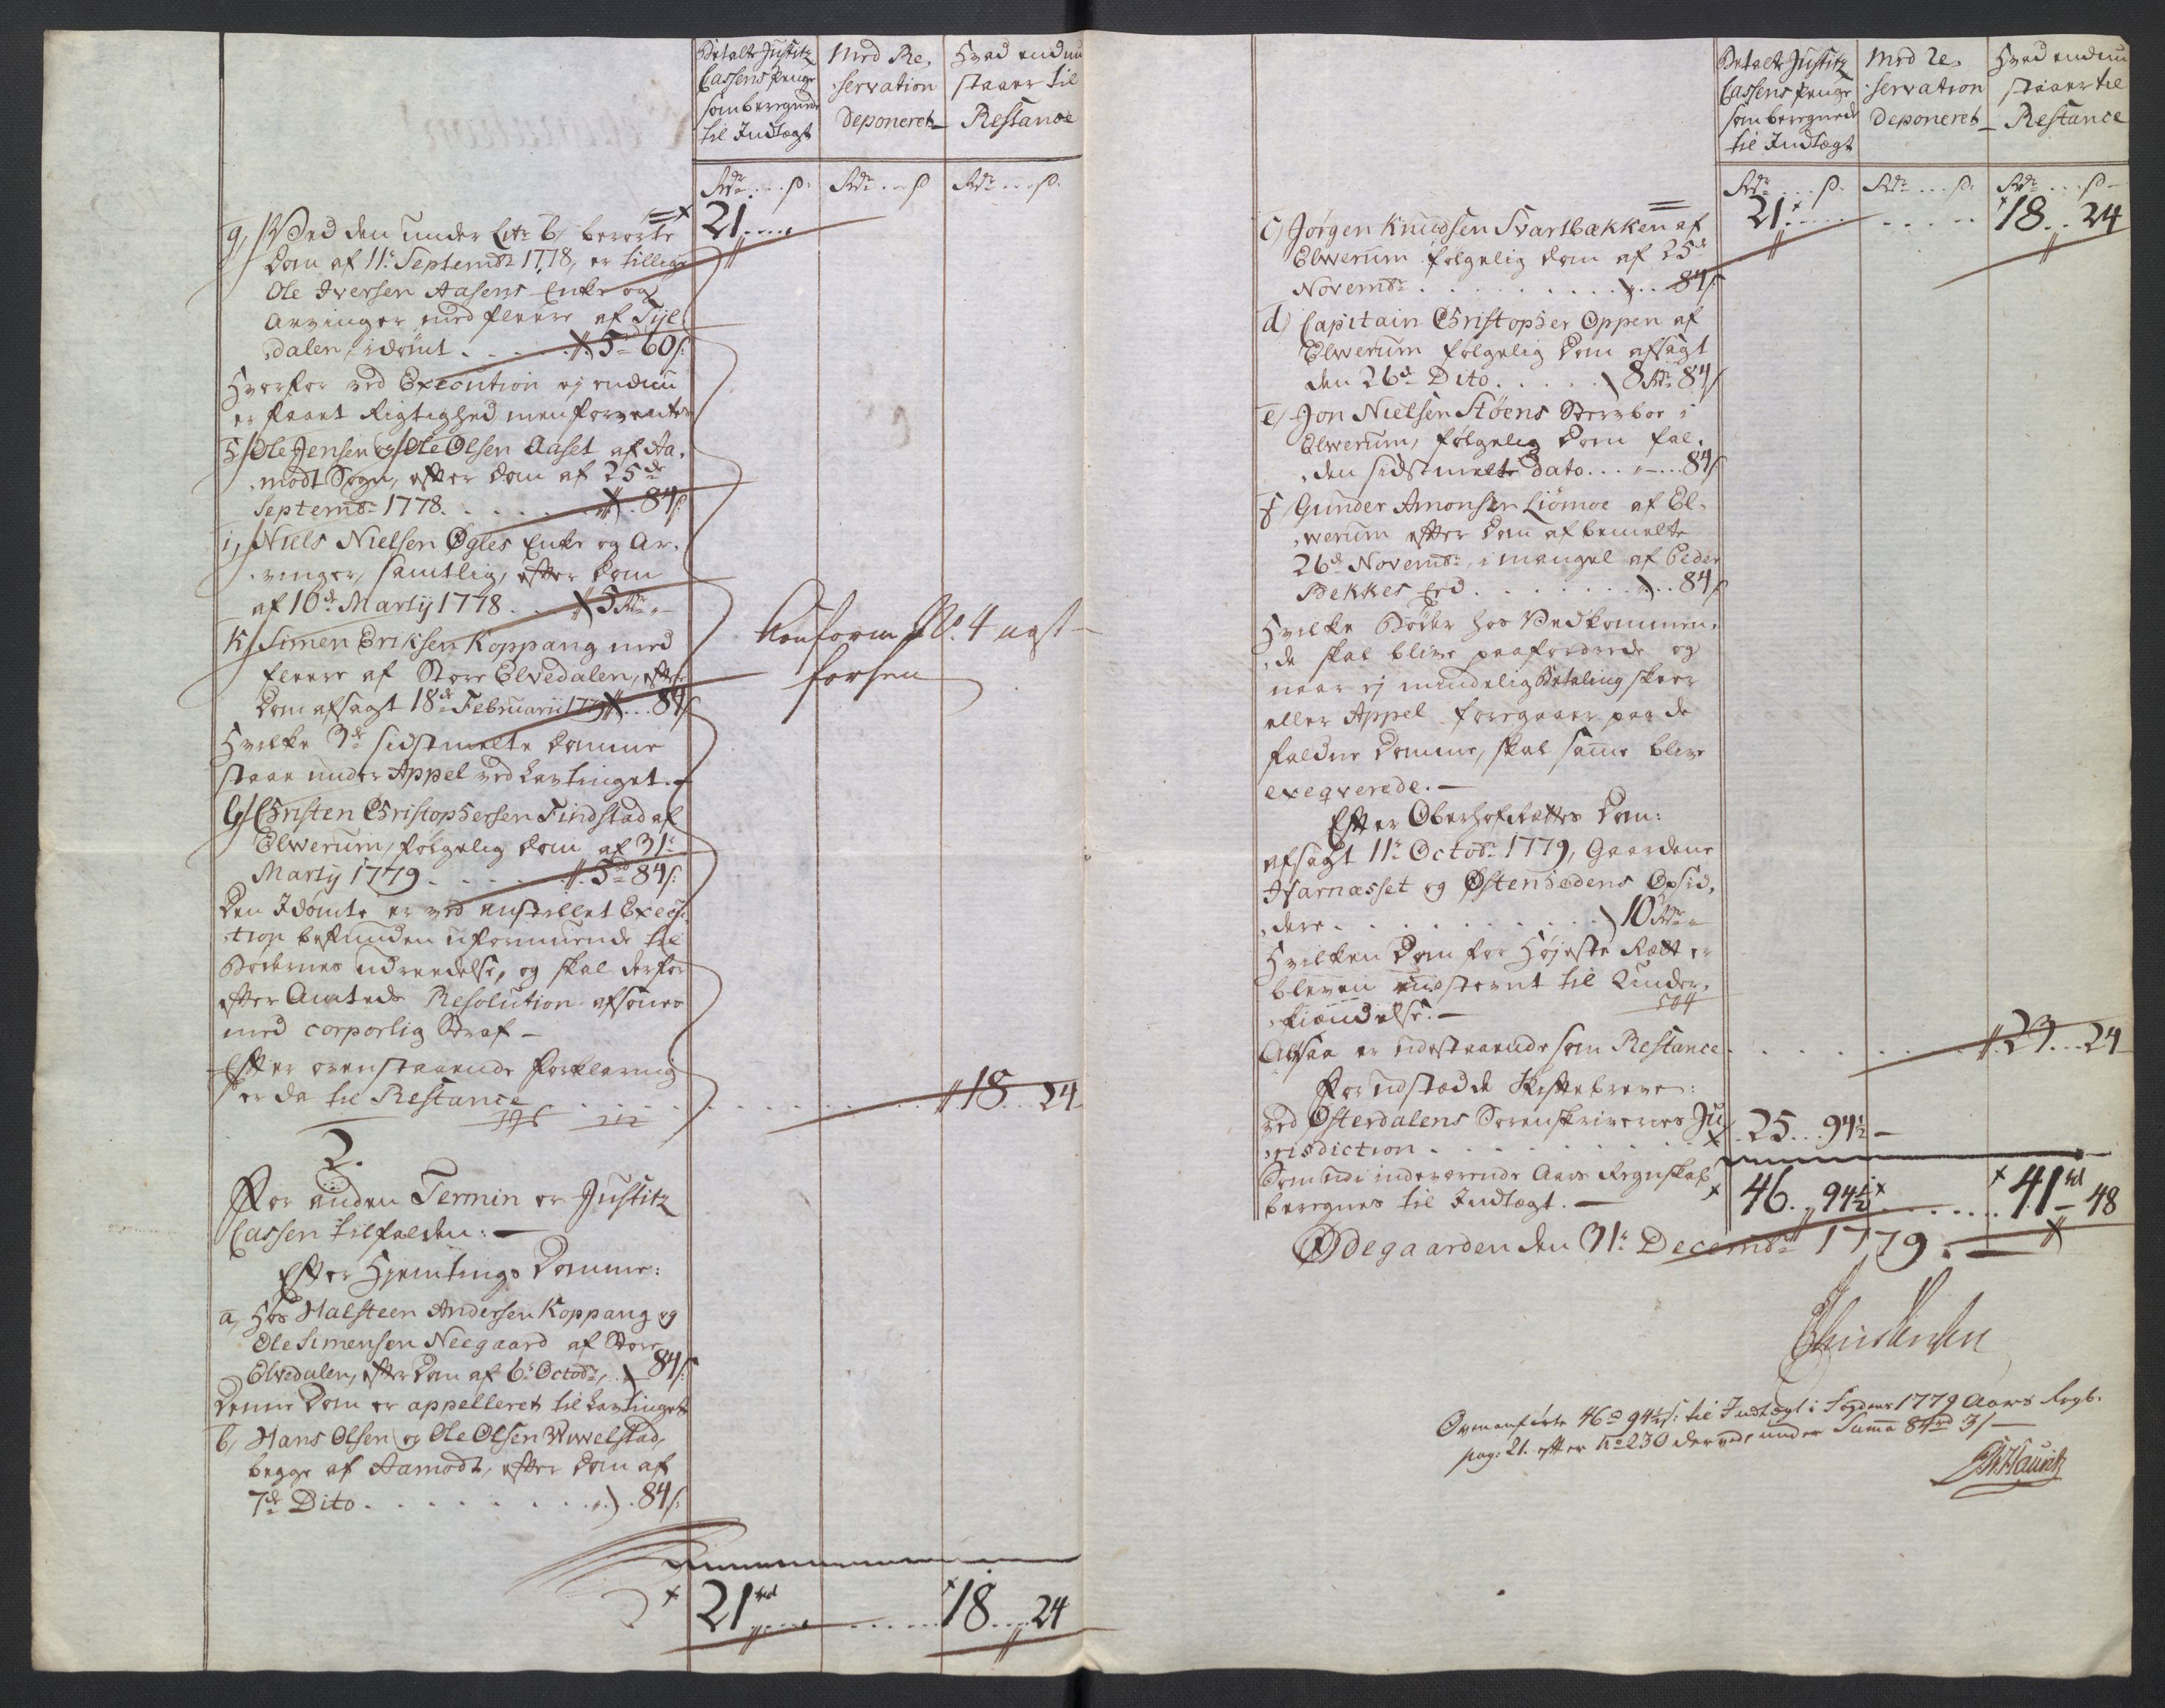 Betalte Justitz
Cassens Penge
som beregnede
til Indtægt
Med Re,
servation
Deponeret
Hvad endnu
staaer til
Restance
Rdr . . . s.
Rdr . . . s
Rdr . . . s.
21 . . . .
g, Ved den under Litr b, berørte
Dom af 11te Septembr 1778, er tillige
Ole Iversen Aasens Enke og
Arvinger med fleere af Tyl,
dalen, idømt . . . . . 5 - 60 s:
Hvorfor ved Execution ej endnu
er faaet Rigtighed men forventes
h, Ole Jensen og Ole Olsen Aaset af Aa,
modt Sogn, efter Dom af 25de
Septembr 1778. . . . . . . . . 84 s:
i, Niels Nielsen Øgles Enke og Ar,
vinger, samtlig, efter Dom
af 10de Martij 1778 . . . 5 Rdr „ -
K, Simen Eriksen Koppang med
fleere af Store Elvedalen, efter
Dom afsagt 18de Februarii 1779 . . . 84 s
Hvilke 3de sidstmelte Domme
staae under Appel ved Lavtinget. -
l, Christen Christophersen Findstad af
Elwerum, følgelig Dom af 31te
Martij 1779 . . . . . . . 5 rd 84 s:
Den Idømte er ved anstillet Execu
tion befunden uformuende til
Bødernes udreedelse, og skal derfor
efter Amtets Resolution afsones
med corporlig Straf -
Efter ovenstaaende Forklaring
er da til Restance . . . . . . . . . . 18 . . . 24
Konform No. 4 agt
forsen
2.
For anden Termin er Justitz
Cassen tilfalden: -
Efter Hjemtings Domme:
a, Hos Halsteen Andersen Koppang og
Ole Simensen Neegaard af Store
Elvedalen, efter Dom af 6te Octobr, . . 84 s:
Denne Dom er appelleret til Lavtinget
b, Hans Olsen og Ole Olsen Wiwelstad,
begge af Aamodt, efter Dom af
7de Dito . . . . . . . . . . . 84 s:
21 rd . . . . . . . . . . 18 . . . 24
Betalte Justitz
Cassens Penge
som beregnede
til Indtægt
Med Re,
servation
Deponeret
Hvad endnu
staaer til
Restance
Rdr . . . s.
Rdr . . . s.
Rdr . . . s -
21 . . . . . . . . . 18 . . 24
c, Jørgen Knudsen Svartbækken af
Elwerum følgelig Dom af 25de
Novembr . . . . . . . . . . . . 84 s
d, Capitain Christopher Oppen af
Elwerum følgelig Dom afsagt
den 26de Dito . . . . . 8 Rdr 84 s
e, Jon Nielsen Støens Stervboe i
Elwerum, følgelig Dom fal,
den sidstmelte dato . . . „ - . . . 84 s
f, Gunder Amonsen Liømoe af El,
werum efter Dom af bemelte
26de Novembr, i mangel af Peder
Bekkes Eed . . . . . . . . . . 84 s
Hvilke Bøder hos Vedkommen,
de skal blive paafordrede og
naar ej mindelig Betaling skeer
eller Appel foregaaer paa de
faldne Domme, skal samme blive
exeqverede. -
Efter Oberhofrættes Dom:
afsagt 11te Octobr 1779, Gaardene
Ivarnæsset og Østenhedens Opsid,
dere . . . . . . . . . . . 10 Rdr „
Hvilken Dom for Højeste Rætt er
bleven indstevnt til Under,
kiendelse. -
504
Altsaa er udestaaende som Restance . . . . . . . . . 23 . . . 24
For udstædde Skiftebreve:
ved Østerdalens Sorenskriveres Ju
risdiction . . . . . . . . . . . 25 . . . 94½ -
Som udi indeværende Aars Regnskab
beregnes til Indtægt. - 46 . . 94½ . . . . . . . 41 rd - 48
Ødegaarden den 31te Decembr 1779. -
Ovenanførte 46 rd 94½ s: til Indtægt i Fogdens 1779 Aars Regb.
pag: 21. efter No 230 derved, under Summa 84 rd 3 s -